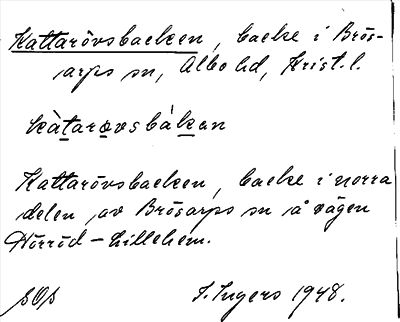 Kattarövsbacken, backe i Brös-
arps sn, Albo hd, Krist. l.
kàtarøvsbákan
Kattarövsbacken, backe i norra
delen av Brösarps sn å vägen
Hörröd - Lillehem.
I. Ingers 1948.